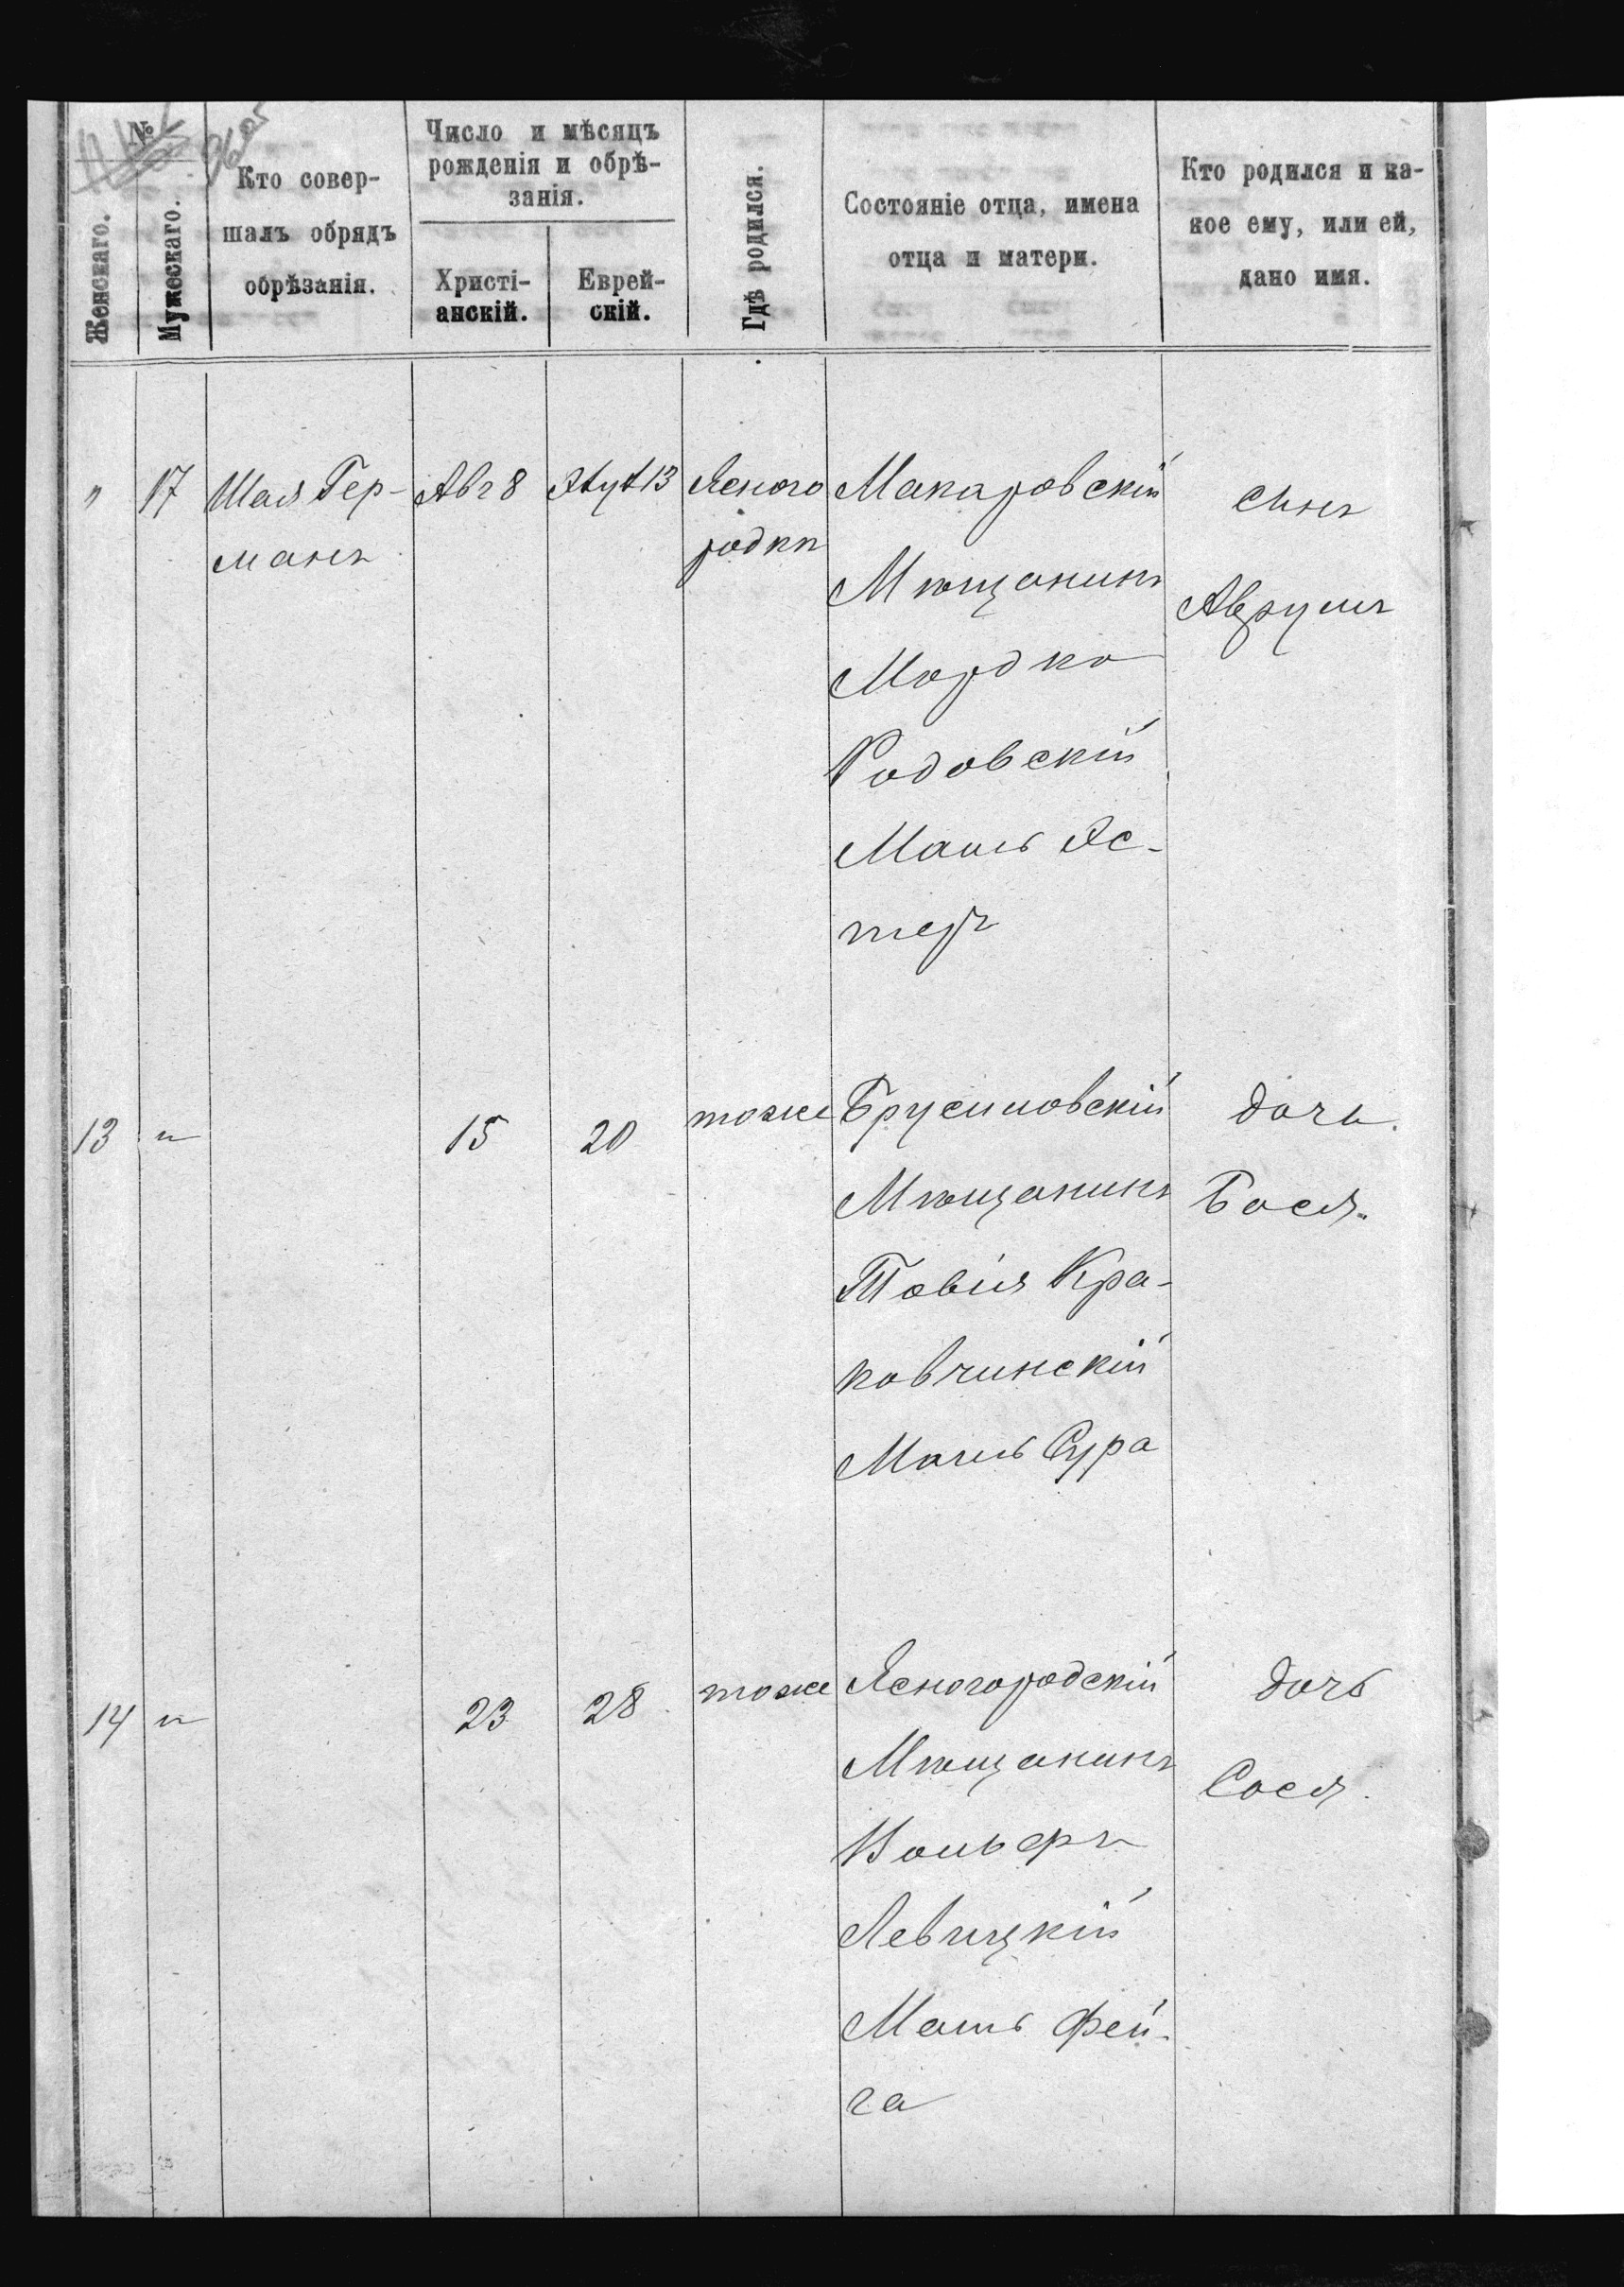 №
Женскаго.
Мужескаго.
Кто совер-
шалъ обрядъ
обрѣзанія.
Число и мѣсяцъ
рожденія и обрѣ-
занія.
Христі-
анскій.
Еврей-
скій.
Гдѣ родился.
Состояніе отца, имена
отца и матери.
Кто родился и ка-
кое ему, или ей,
дано имя.
" 17 Шая Гер-
манъ
Авг 8
13
Ясного
родки
Макаровскій
Мѣщанинъ
Мордко
Родовскій
Мать Эс-
теръ
сынъ
Аврумъ
13 " 15 20 тоже
Брусиловскій
Мѣщанинъ
Товія Кра-
ковчинскій
Мать Сура
дочь.
Бася.
14 " 23 28 тоже
Ясногородскій
Мѣщанинъ
Вольфъ
Левицкій
Мать Фей-
га
дочь
Сося.